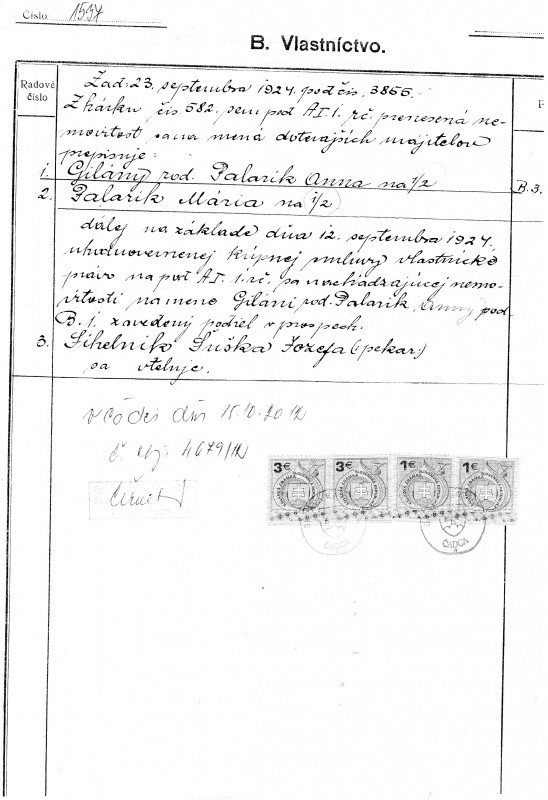 Číslo 1597
B. Vlastníctvo.
Radové
číslo
Žad: 23. septembra 1927. pod čís. 3866.
Z hárku čís. 582. sem pod A I 1. r.č. prenesená ne-
movitosť sa na mená doterajších majiteľov
prepisuje:
1. Gilány rod. Palarik Anna na 1/2
B.3.
2. Palarik Mária na 1/2
ďalej na základe dňa 12. septembra 1927.
uhodnovernenej kúpnej smluvy vlastnícke
právo na pod A I. 1. r.č. sa nachádzajúcej nemo-
vitosti na meno Giláni rod. Palarik Anny pod
B. 1. zavedený podiel v prospech:
3. Sihelník Suška Jozefa (: pekar:)
sa vteluje.
v Čadci dňa 15.10.2012
č. obj. 4679/12
3€ 3€ 1€ 1€
ČADCA
ČADCA